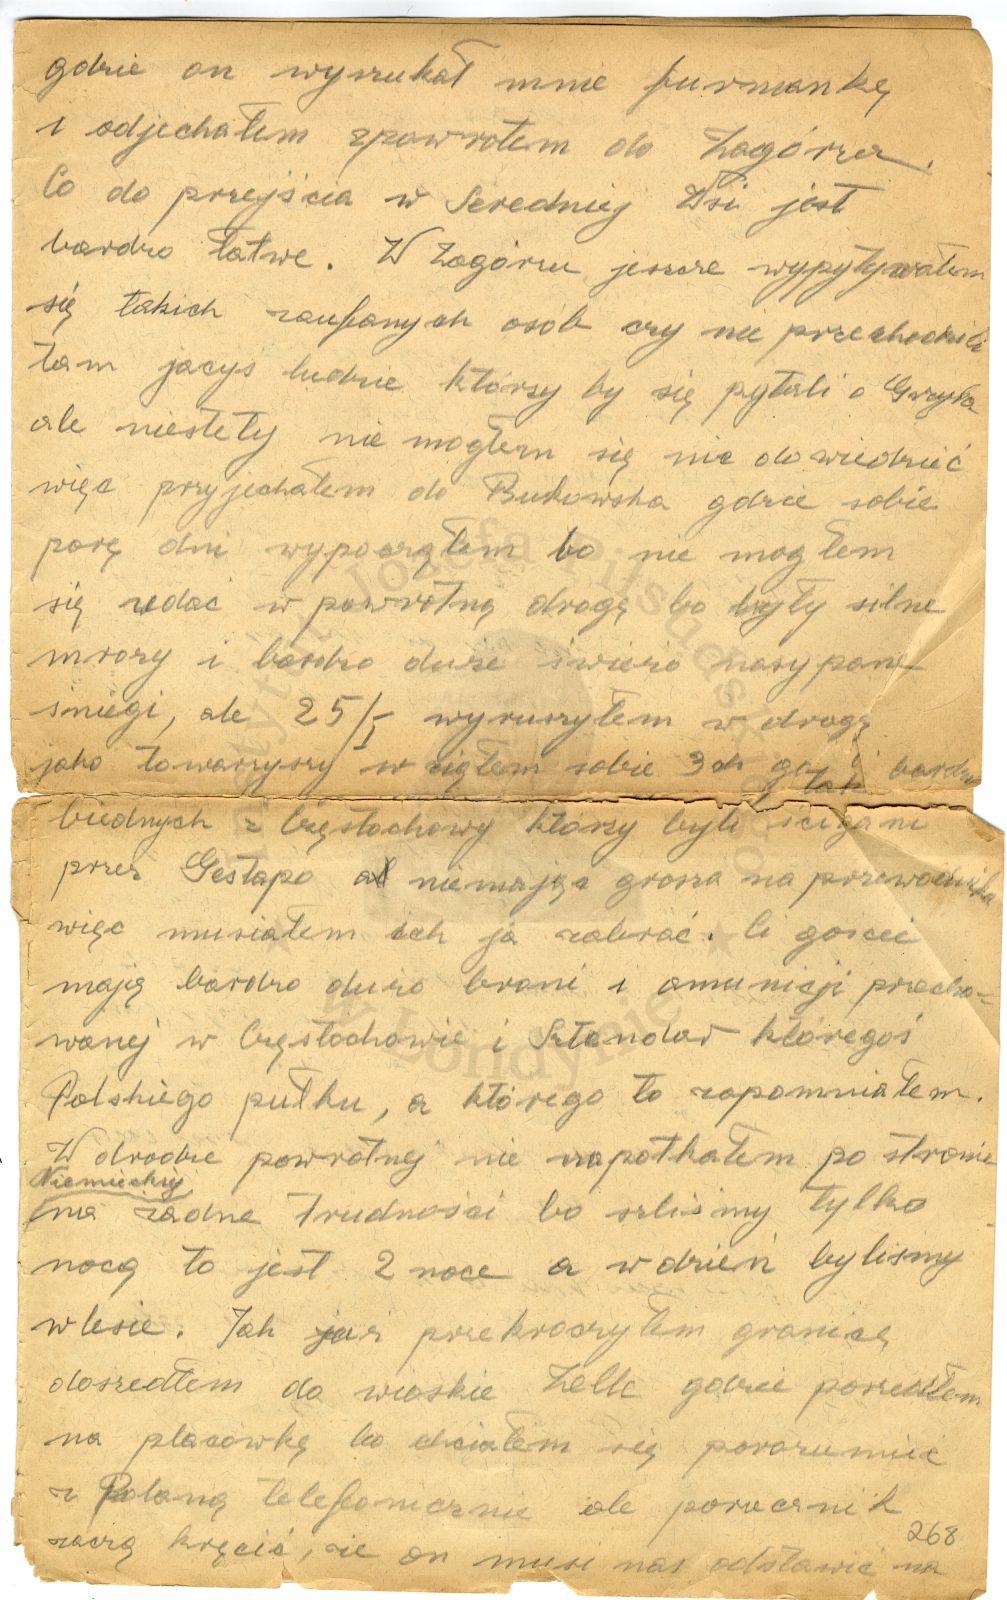 gdzie on wyszukał mnie furmankę
i odjechałem zpowrotem do Zagórza.
Co do przejścia w Seredniej Wsi jest
bardzo łatwe. W Zagórzu jeszcze wypytywałem
się takich zaufanych osób czy nie przechodzili
tam jacyś ludzie którzy by się pytali o Gryka
ale niestety nie mogłem się nic dowiedzieć
więc przyjechałem do Bukowska gdzie sobie
parę dni wypocząłem bo nie mogłem
się zdać w powrotną drogę bo były silne
mrozy i bardzo duże świeżo nasypane
śniegi, ale 25/I wyruszyłem w drogę
jako towarzyszy wziąłem sobie 3ch gości bardzo
biednych z Częstochowy którzy byli tak ścigani
przez Gestapo a niemając grosza na przewodnika
więc musiałem ich ja zabrać. Ci goście
mają bardzo dużo broni i amunicji przecho-
wanej w Częstochowie i Sztandar któregoś
Polskiego pułku, a którego to zapomniałem.
W drodze powrotnej nie napotkałem po stronie
Niemieckiej
na żadne trudności bo szliśmy tylko
nocą to jest 2 noce a w dzień byliśmy
wlesie. Jak już przekroczyłem granicę
doszedłem do wioskie Zellc gdzie poszedłem
na placówkę bo chciałem się porozumieć
z Polaną telefonicznie ale porucznik
zaczą kręcić, że on musi nas odstawić na
268
Instytut Józefa Piłsudskiego
w Londynie